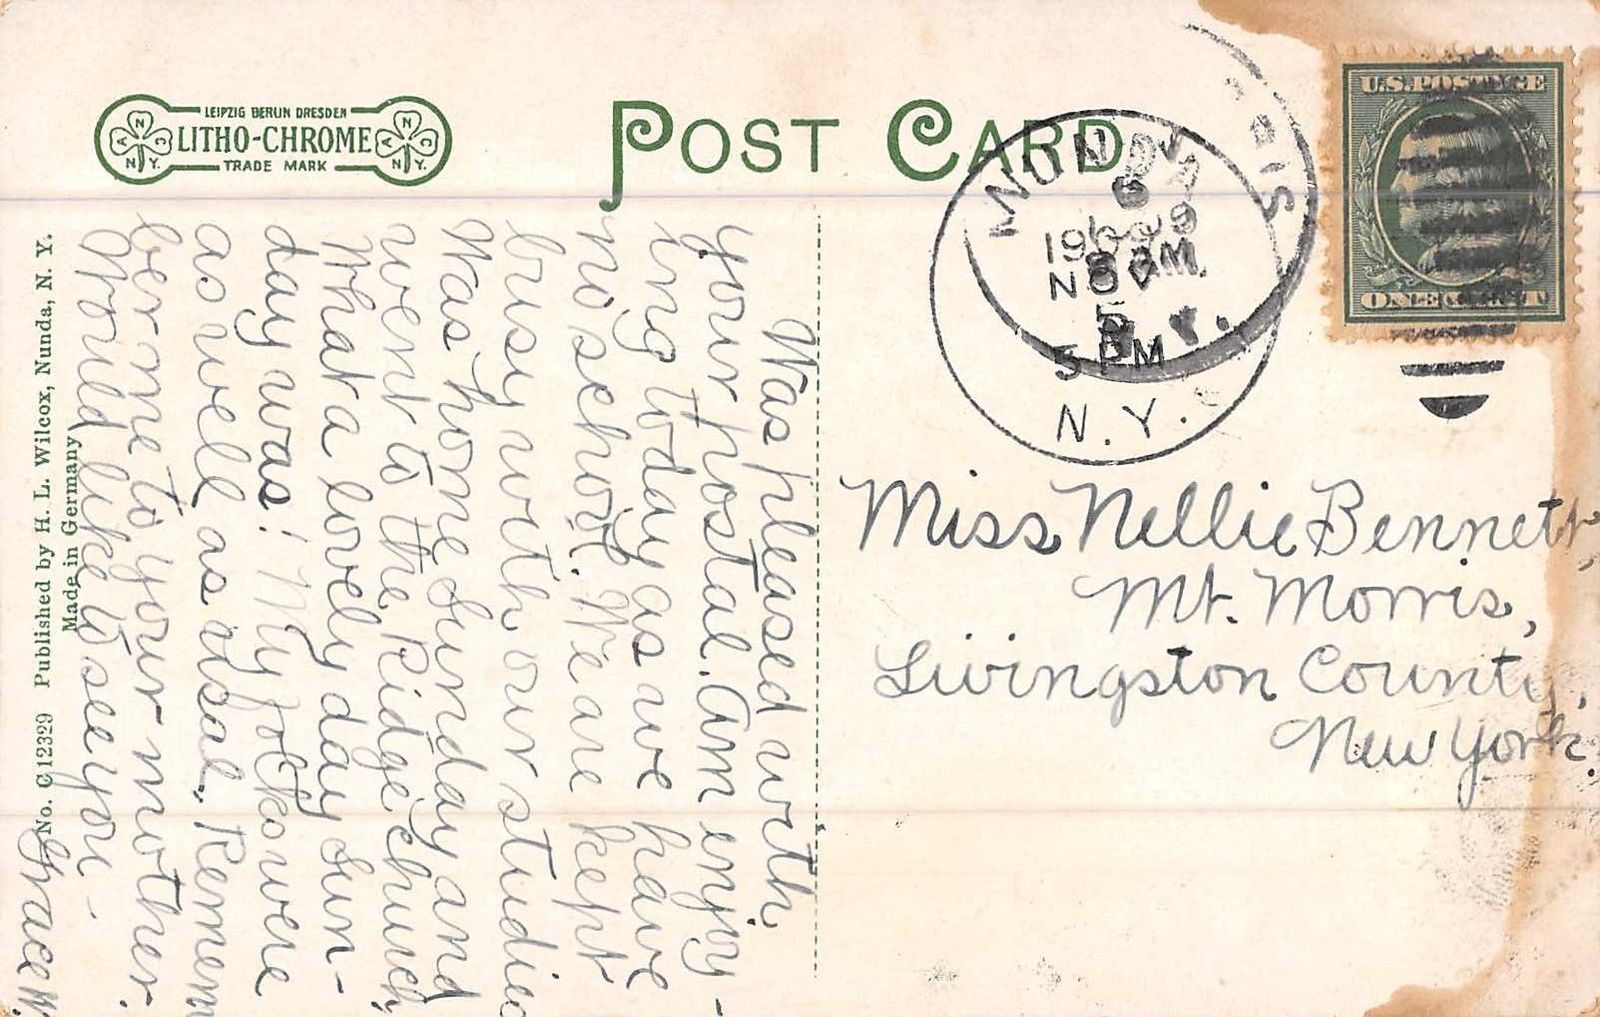 LEIPZIG BERLIN DRESDEN
LITHO-CHROME
TRADE MARK
A N C
N.Y.
A N C
N.Y.
POST CARD
U.S. POSTAGE
ONE CENT
NUNDA
1909
NOV
5
5 PM
N.Y.
Miss Nellie Bennett,
Mt. Morris,
Livingston County,
New York.
Was pleased with
your postal. Am enjoy-
ing today as we have
no school. We are kept
busy with our studies
Was home Sunday and
went to the Ridge church,
What a lovely day Sun-
day was! My folks were
as well as usal. Remem
ber me to your mother.
Would like to see you -
Grace W.
No. C12329 Published by H. L. Wilcox, Nunda, N. Y.
Made in Germany